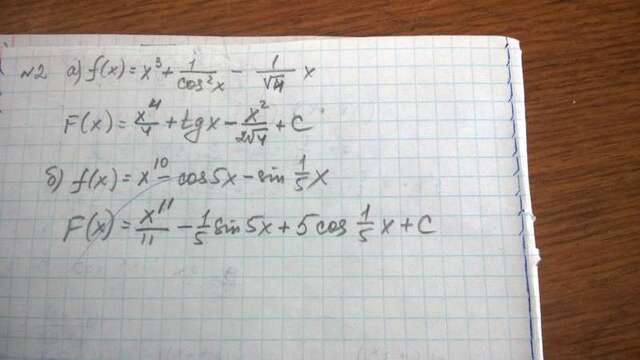 №2 а) f(x) = x³ + 1/cos²x − 1/√4 x
F(x) = x⁴/4 + tgx − x²/2√4 + C
б) f(x) = x¹⁰ − cos5x − sin 1/5 x
F(x) = x¹¹/11 − 1/5 sin 5x + 5 cos 1/5 x + C